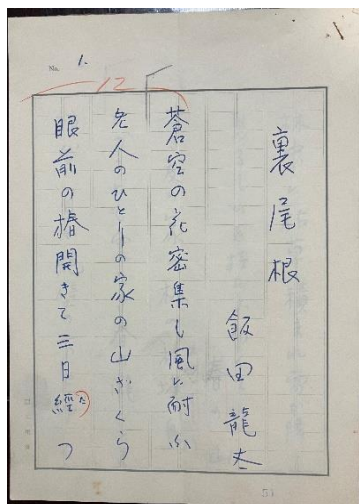 No. 1.
12
裏尾根
飯田龍太
蒼空の花密集し風に耐ふ
老人のひとりの家の山ざくら
眼前の椿開きて三日経つ
た